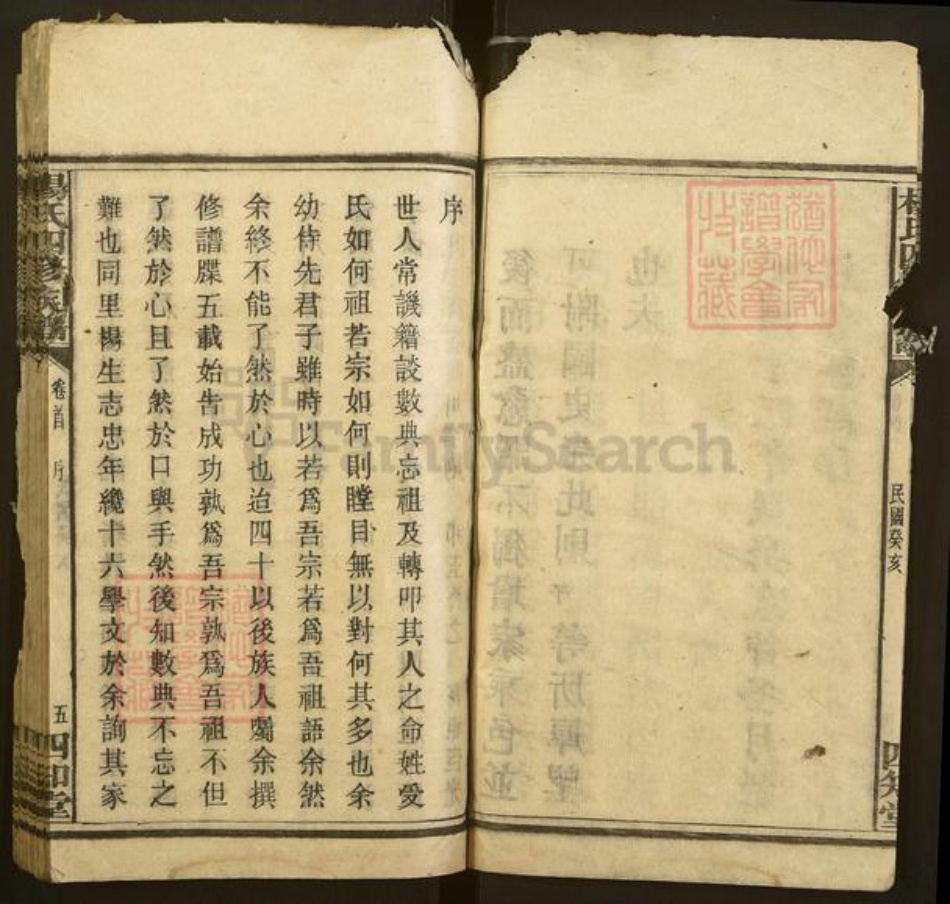 序
世人常譏籍談數典忘祖及轉叩其人之命姓受
氏如何祖若宗如何則瞠目無以對何其多也余
幼侍先君子雖時以若爲吾宗若爲吾祖語余然
余終不能了然於心也迨四十以後族人屬余撰
修譜牒五載始告成功孰爲吾宗孰爲吾祖不但
了然於心且了然於口與手然後知數典不忘之
難也同里楊生志忠年纔十六學文於余詢其家
楊氏四修族譜
卷首
序
五
四知堂
民國癸亥
四知堂
FamilySearch